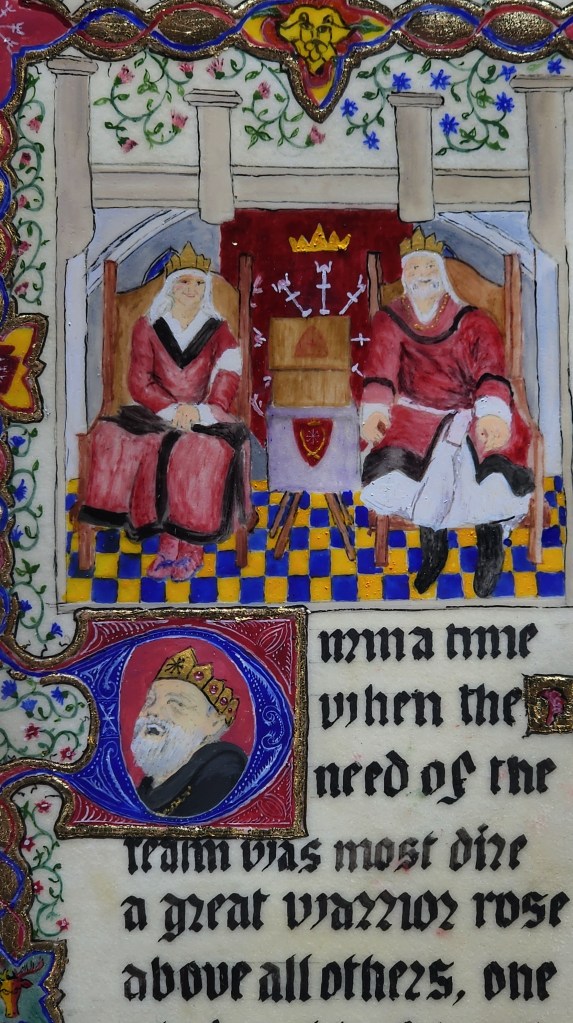 Durin a time
when the
need of the
realm was most dire
a great warrior rose
above all others, one